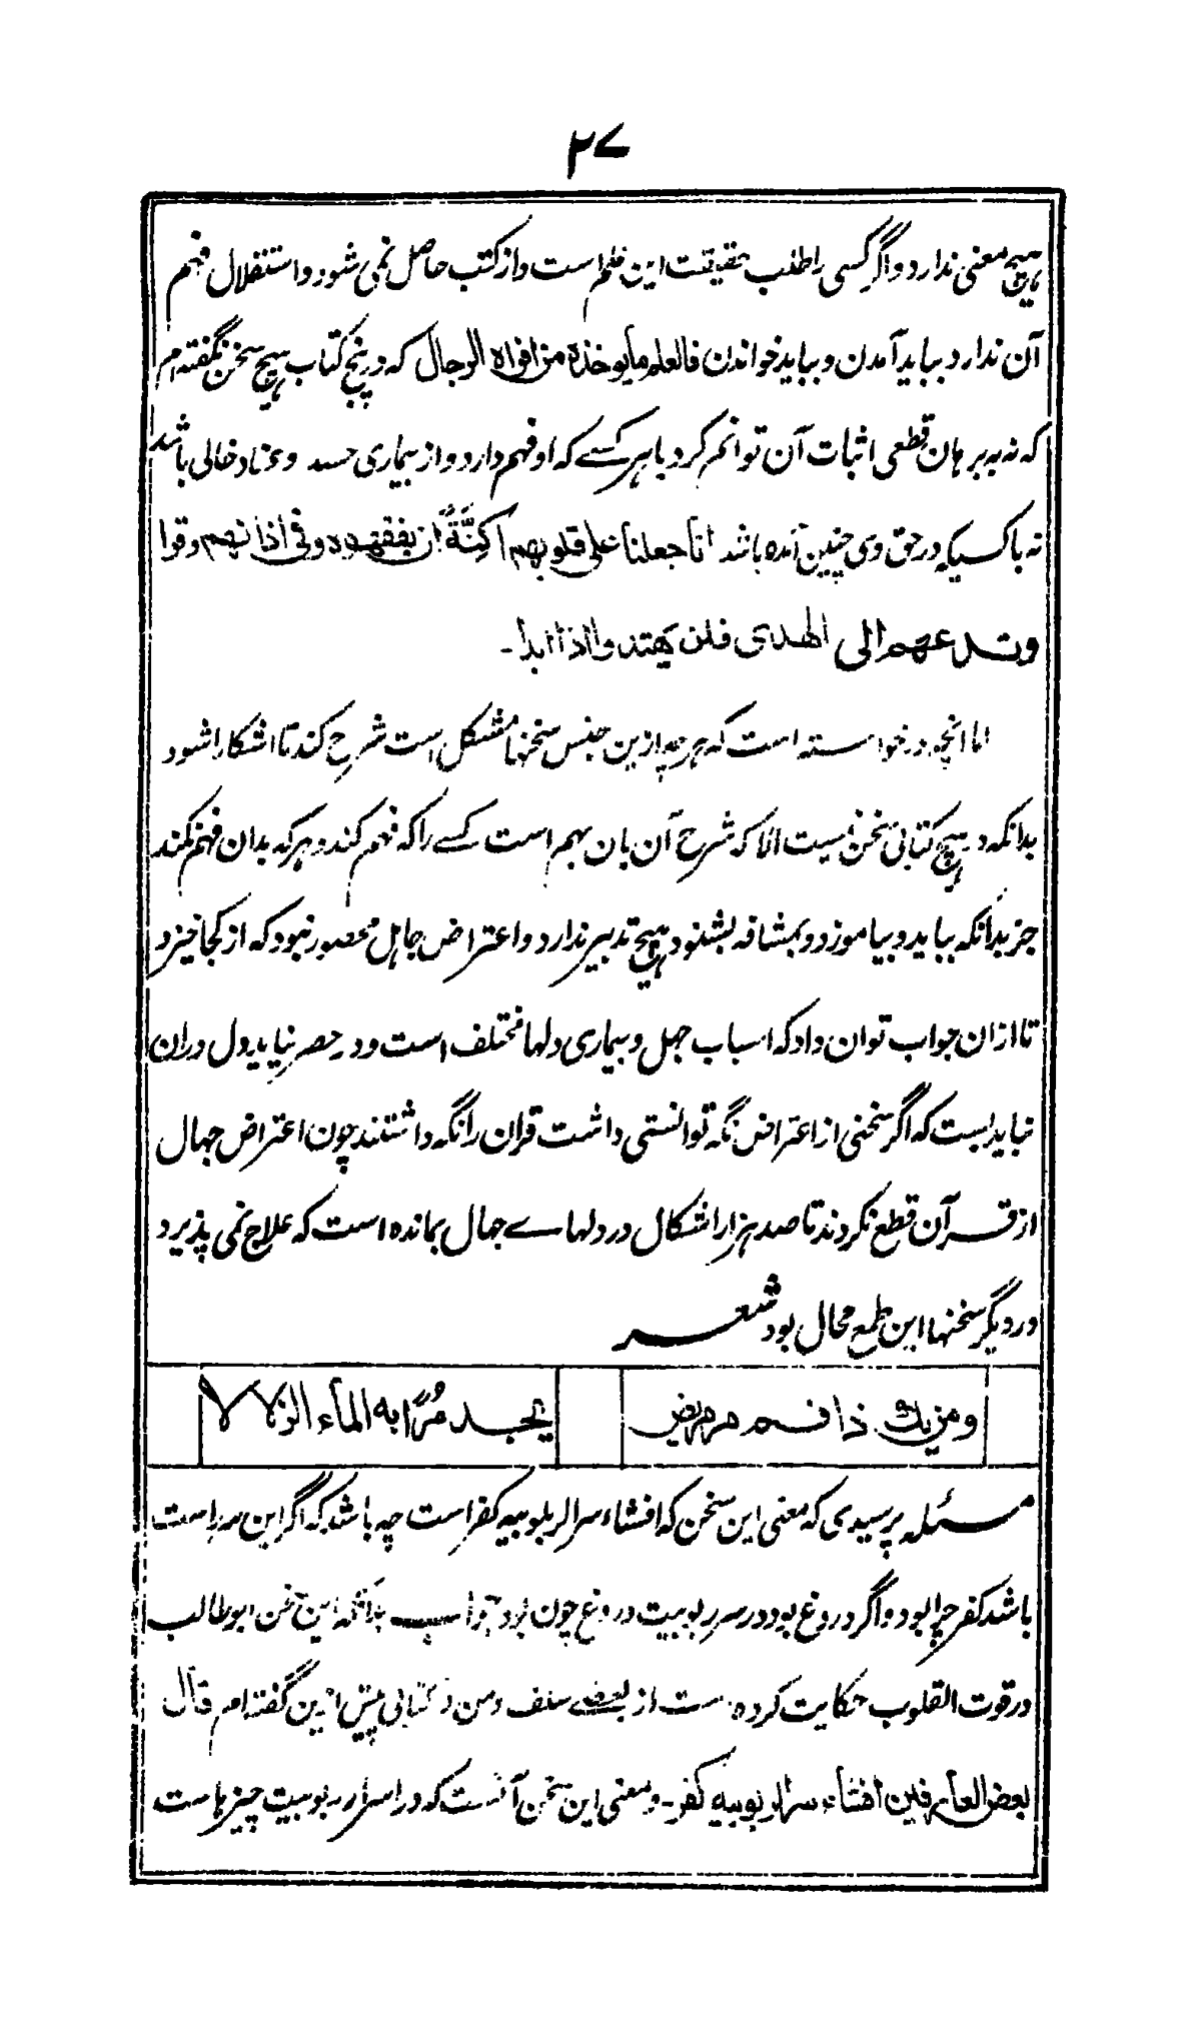 ۲۷
هیچ معنی ندارد و اگر کسی را طلب حقیقت این علم است و از کتب حاصل نمی شود و استقلال فهم
آن ندارد بباید آمدن و بباید خواندن فالعلم ما یوخذه من افواه الرجال که در پنج کتاب هیچ سخن نگفته ام
که نه به برهان قطعی اثبات آن توانم کرد با هر کسے که او فهم دارد و از بیماری حسد و عناد خالی باشد
نه با کسیکه در حق وی چنین آمده باشد انا جعلنا علی قلوبهم اکِنَّةً ان یفقهوه وفی اٰذانهم وقرا
وتدعهم الی الهدی فلن یهتدوا اذا ابدا ۔
اما آنچه درخواسته است که هرچه ازین جنس سخنها مشکل است شرح کند تا اشکارا شود
بدانکه در هیچ کتابی سخن نیست الا که شرح آن بان بهم است کسے را که فهم کند و هر که بدان فهم نکند
جز بدانکه بباید و بیاموزد و بمشافه بشنود هیچ تدبیر ندارد و اعتراض جاهل محصور نبود که از کجا خیزد
تا ازان جواب توان داد که اسباب جهل و بیماری دلها مختلف است و در حصر نیاید و دل دران
نباید بست که اگر سخنی از اعتراض نگه توانستی داشت قران را نگه داشتند چون اعتراض جهال
از قرآن قطع نکردند تا صد هزار اشکال در دلهاے جهال بمانده است که علاج نمی پذیرد
در دیگر سخنها این طمع محال بود شعر
ومن یک ذا فم مر مریض یجد مُرًّا به الماء الزلالا
مسئله پرسیدی که معنی این سخن که افشاء سر الربوبیه کفر است چه باشد که اگر این سر راست
باشد کفر چرا بود و اگر دروغ بود در سر ربوبیت دروغ چون بود جواب بدانکه این سخن ابو طالب
در قوت القلوب حکایت کرده است از بعضے سلف و من در کتابی پیش ازین گفته ام قال
بعض العارفین افشاء سر الربوبیه کفر ۔ و معنی این سخن آنست که در اسرار ربوبیت چیزها ست